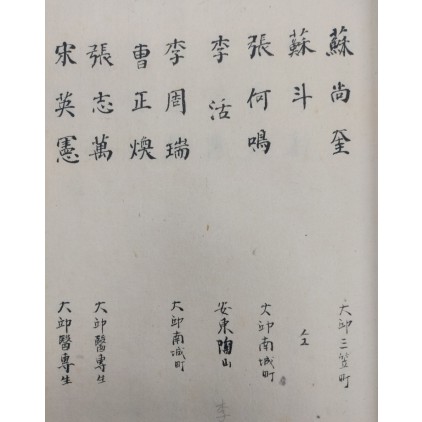 蘇尚奎 大邱三笠町
蘇斗
張何鳴 大邱南城町
李活 安東陶山
李周瑞 大邱南城町
曹正煥
張志萬 大邱醫專生
宋英憲 大邱醫專生
李